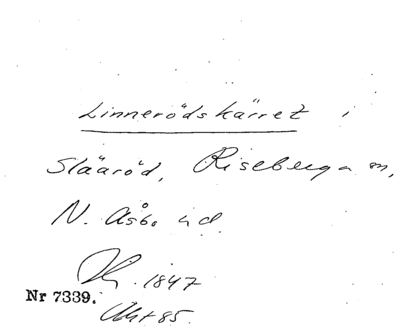 Linnerödskärret i
Slääröd, Riseberga sn,
N. Åsbo hd.
1847
Nr 7339.
Akt 85.